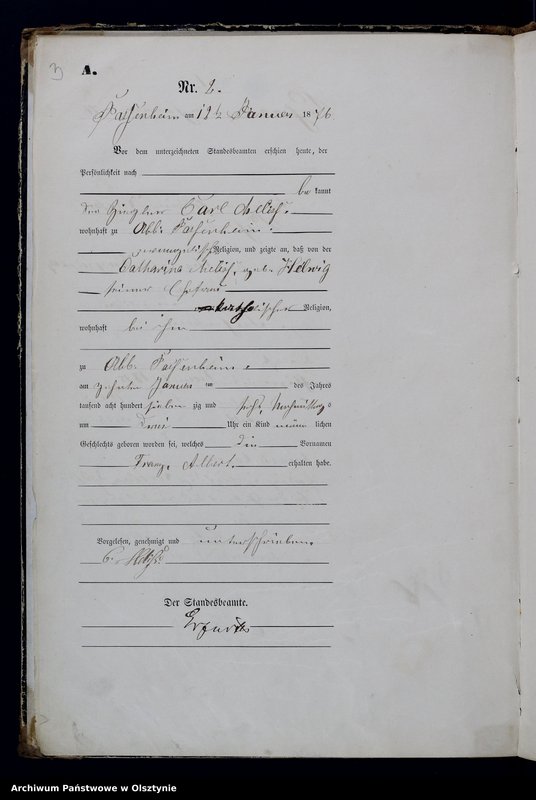 3
A.
Nr. 2.
Passenheim am 12t Januar 1876
Vor dem unterzeichneten Standesbeamten erschien heute, der
Persönlichkeit nach
be kannt
der Ziegler Carl
wohnhaft zu Abb. Passenheim
evangelisch Religion, und zeigte an, daß von der
Catharina geb. Helwig
seiner Ehefrau
katholischer Religion,
wohnhaft bei ihm
zu Abb. Passenheim
am zehnten Januar des Jahres
tausend acht hundert sieben zig und sechs Nachmittags
um drei Uhr ein Kind männ lichen
Geschlechts geboren worden sei, welches die Vornamen
Franz Albert erhalten habe.
Vorgelesen, genehmigt und unterschrieben.
C.
Der Standesbeamte.
Archiwum Państwowe w Olsztynie